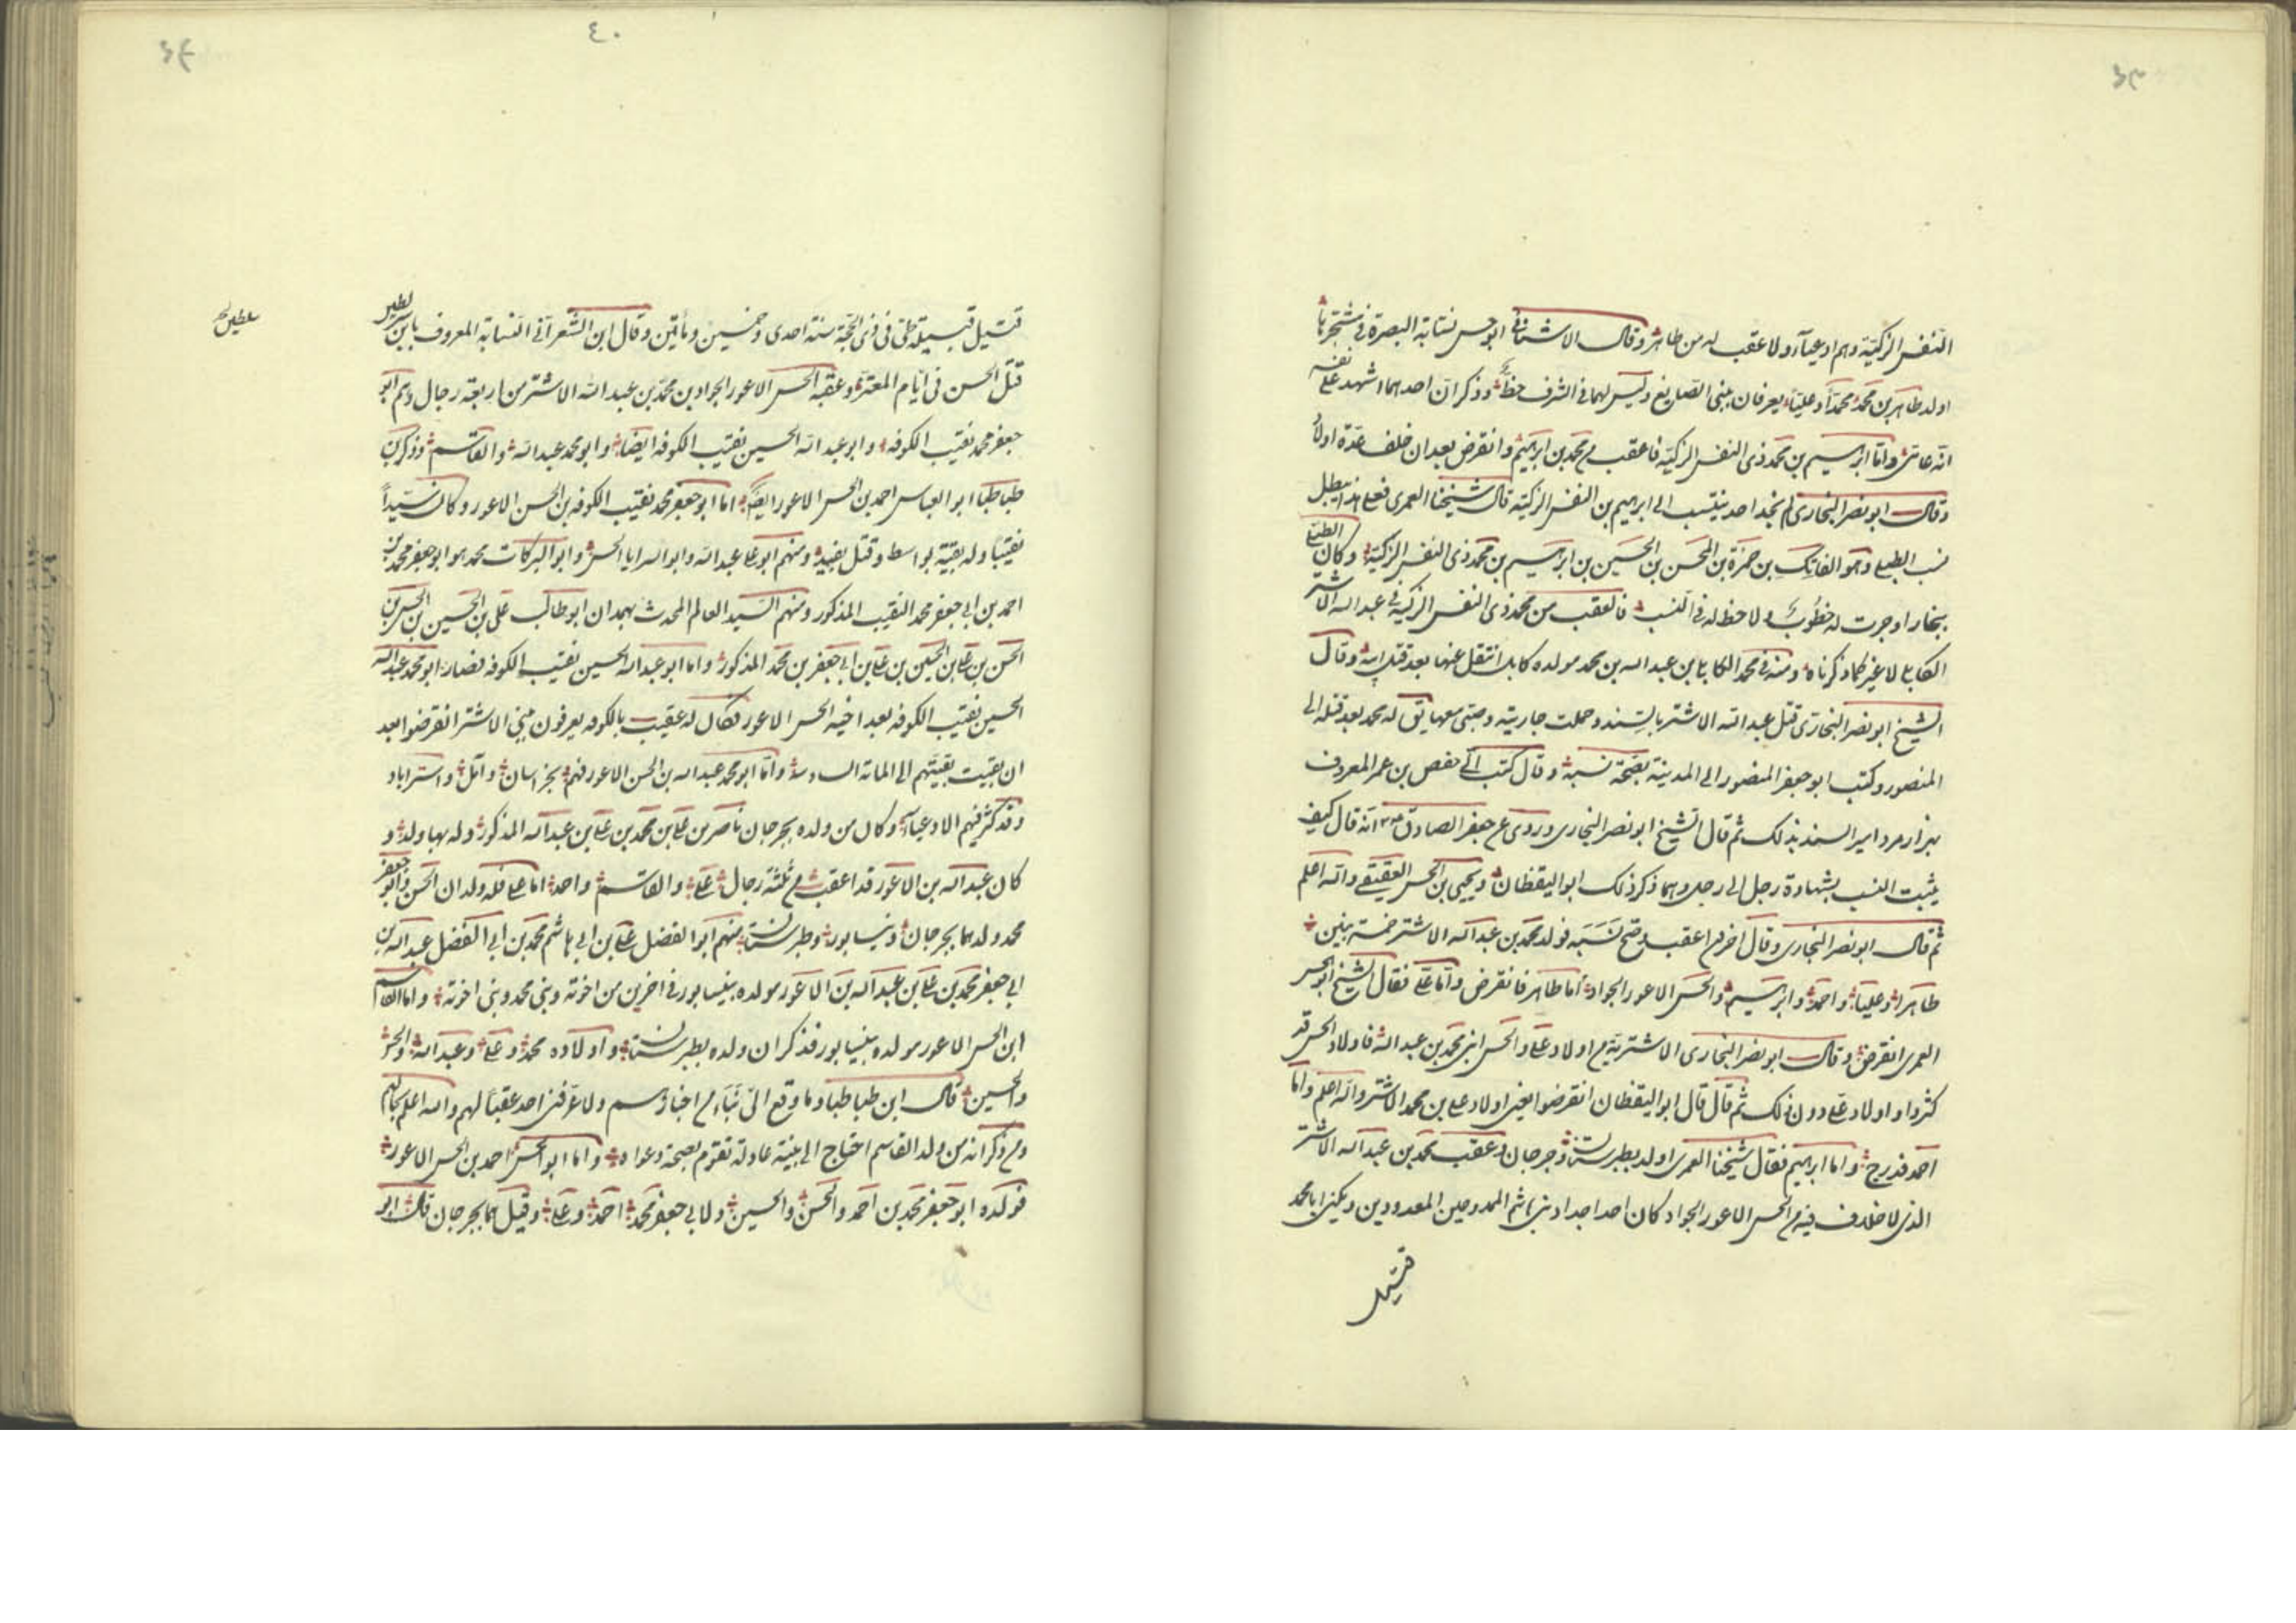 النفس الزكية وهم ادعياء ولا عقب له من طاهر وقال الاشنانى ابو الحسن نسابة البصرة فى مشجره
اولد طاهر بن محمد محمداً وعلياً يعرفان ببنى الصايغ وليس لهما فى الشرف حظ وذكر ان احدهما اشهد على نفسه
انه عامى واما ابرهيم بن محمد ذى النفس الزكية فاعقب من محمد بن ابرهيم وانقرض بعد ان خلف عدة اولاد
وقال ابو نصر البخارى لم نجد احد ينتسب الى ابرهيم بن النفس الزكية قال شيخنا العمرى فعلى هذا يبطل
نسب الطبيلى وهو الفاتك بن حمزة بن المحسن بن الحسين بن ابرهيم بن محمد ذى النفس الزكية وكان
ببخارا وجرت له خطوب ولا حظ له فى النسب فالعقب من محمد ذى النفس الزكية فى عبد الله الاشتر
الكابلى لا غير كما ذكرناه ومنه فى محمد الكابلى بن عبد الله بن محمد مولده كابل انتقل عنها بعد قتل ابيه وقال
الشيخ ابو نصر البخارى قتل عبد الله الاشتر بالسند وحملت جاريته وصبى معها يق له محمد بعد قتله الى
المنصور وكتب ابو جعفر المنصور الى المدينة بصحة نسبه وقال كتب الى حفص بن عمر المعروف
بهزارمرد امير السند بذلك ثم قال الشيخ ابو نصر البخارى وروى عن جعفر الصادق انه قال كيف
يثبت النسب بشهادة رجل الى رجل وهما ذكر ذلك ابو اليقظان ويحيى بن الحسن العقيقى والله اعلم
ثم قال ابو نصر البخارى وقال اخرون اعقب وصح نسبه فولد محمد بن عبد الله الاشتر خمسة بنين
طاهراً وعلياً واحمد وابرهيم والحسن الاعور الجواد اما طاهر فانقرض واما على فقال الشيخ ابو الحسن
العمرى انقرض وقال ابو نصر البخارى الاشترية من اولاد على والحسن ابنى محمد بن عبد الله فاولاد الحسن قد
كثروا واولاد على دون ذلك ثم قال قال ابو اليقظان انقرضوا يعنى اولاد على بن محمد الاشتر والله اعلم واما
احمد فدرج واما ابرهيم فقال شيخنا العمرى اولد بطبرستان وجرجان وعقب محمد بن عبد الله الاشتر
الذى لا خلاف فيه من الحسن الاعور الجواد كان احد اجواد بنى هاشم الممدوحين المعدودين ويكنى ابا محمد
قتيل
٤٠
قتيل قتيلة طى فى ذى الحجة سنة احدى وخمسين ومأتين وقال ابن الشعرانى النسابة المعروف بابن
قتل الحسن فى ايام المعتز وعقبه الحسن الاعور الجواد بن محمد بن عبد الله الاشتر من اربعة رجال وهم ابو
جعفر محمد نقيب الكوفه وابو عبد الله الحسين نقيب الكوفه ايضا وابو محمد عبد الله والقاسم وذكر بن
طباطبا ابو العباس احمد بن الحسن الاعور ايضاً اما ابو جعفر محمد نقيب الكوفه بن الحسن الاعور وكان سيداً
نقيبا وله بقية بواسط وقتل بفيد ومنهم ابو على عبد الله وابو السرايا الحسن وابو البركات محمد هو ابو جعفر محمد بن
احمد بن ابى جعفر محمد النقيب المذكور ومنهم السيد العالم المحدث بهمدان ابو طالب على بن الحسين بن الحسن بن
الحسن بن على بن الحسين بن على بن ابى جعفر بن محمد المذكور واما ابو عبد الله الحسين نقيب الكوفه فصار ابو محمد عبد الله
الحسين نقيب الكوفه بعد اخيه الحسن الاعور فكان له عقب بالكوفه يعرفون ببنى الاشتر انقرضوا بعد
ان بقيت بقيتهم الى المائة السادسه واما ابو محمد عبد الله بن الحسن الاعور فمنهم بخراسان وآمل واستراباد
وقد كثر فيهم الادعياء وكان من ولده بجرجان ناصر بن على بن محمد بن على بن عبد الله المذكور وله بها ولد و
كان عبد الله بن الاعور قد اعقب من ثلثة رجال على والقاسم واحمد اما على فله ولدان الحسن وابو جعفر
محمد ولدهما بجرجان ونيسابور وطبرستان منهم ابو الفضل على بن ابى هاشم محمد بن ابى الفضل عبد الله بن
ابى جعفر محمد بن على بن عبد الله بن الاعور مولده بنيسابور فى اخرين من اخوته وبنى محمد وبنى اخوته واما القاسم
ابن الحسن الاعور مولده بنيسابور فذكر ان ولده بطبرستان واولاده محمد وعلى وعبد الله والحسن
والحسين قال ابن طباطبا وما وقع الى نباء من اخبارهم ولا عرفنى احد عقباً لهم والله اعلم بحالهم
ومن ذكر انه من ولد القاسم احتاج الى بينة عادلة تقوم بصحة دعواه واما ابو الحسن احمد بن الحسن الاعور
فولده ابو جعفر محمد بن احمد والحسن والحسين ولابى جعفر محمد احمد وعلى وقيل هما بجرجان قال ابو